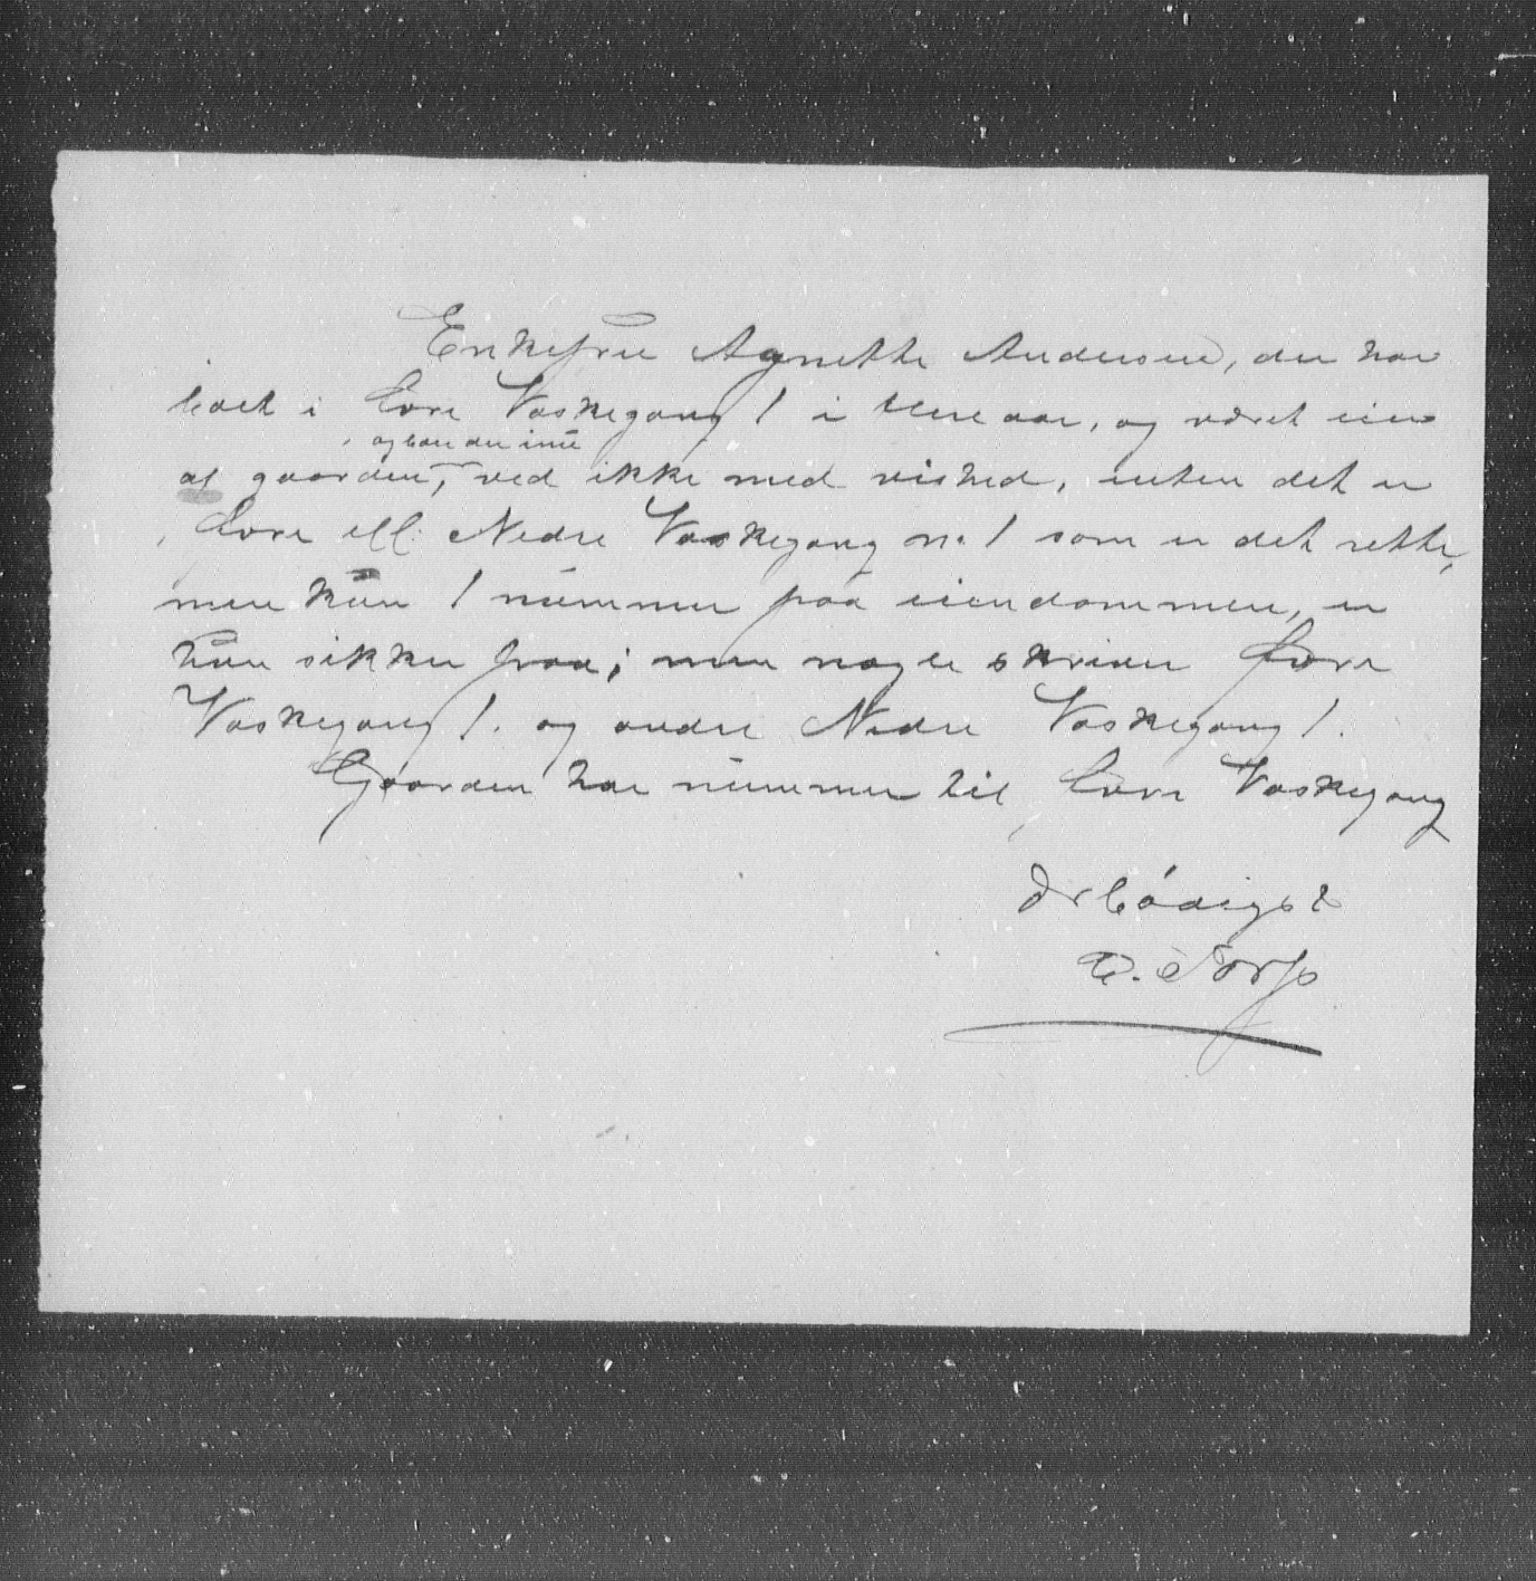 Enkefru Agnethe Andersen, der har
boet i Øvre Vaskegang 1 i flere aar, og været eier
og bor der inu
af gaarden, ved ikke med vished, enten det er
Øvre ell: Nedre Vaskegang no 1 som er det rette,
men kun 1 nummer paa eiendommen, er
hun sikker paa; men nogle skriver Øvre
Vaskegang 1. og andre Nedre Vaskegang 1.
Gaarden har nummer til Øvre Vaskegang
Ærbødigst
Torp